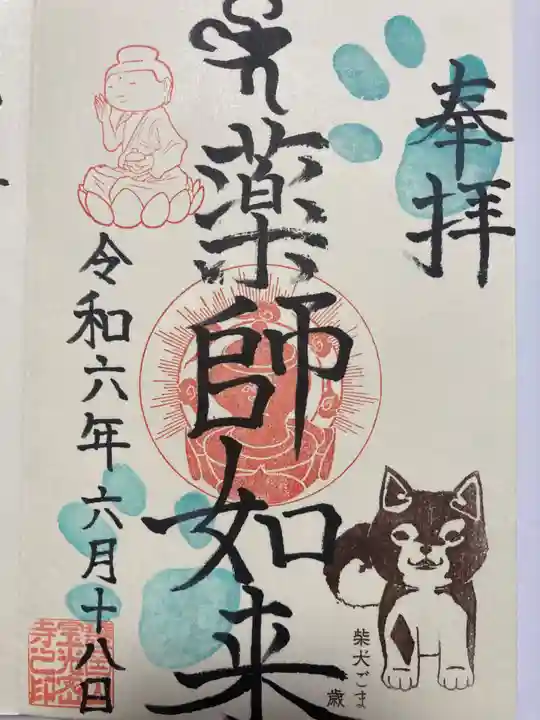 奉拝
薬師如来
令和六年六月十八日
柴犬ごま
歳